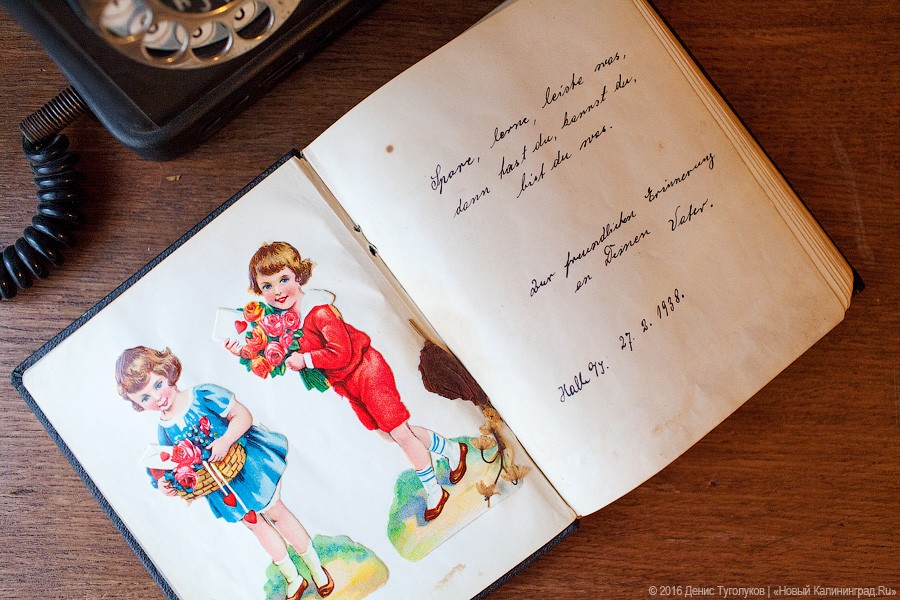 Spare, lerne, leiste was,
dann hast du, kannst du,
bist du was.
Zur freundlichen Erinnerung
an Deinen Vater.
Halle a/S. 27. 2. 1938.
© 2016 Денис Туголуков | «Новый Калининград.Ru»